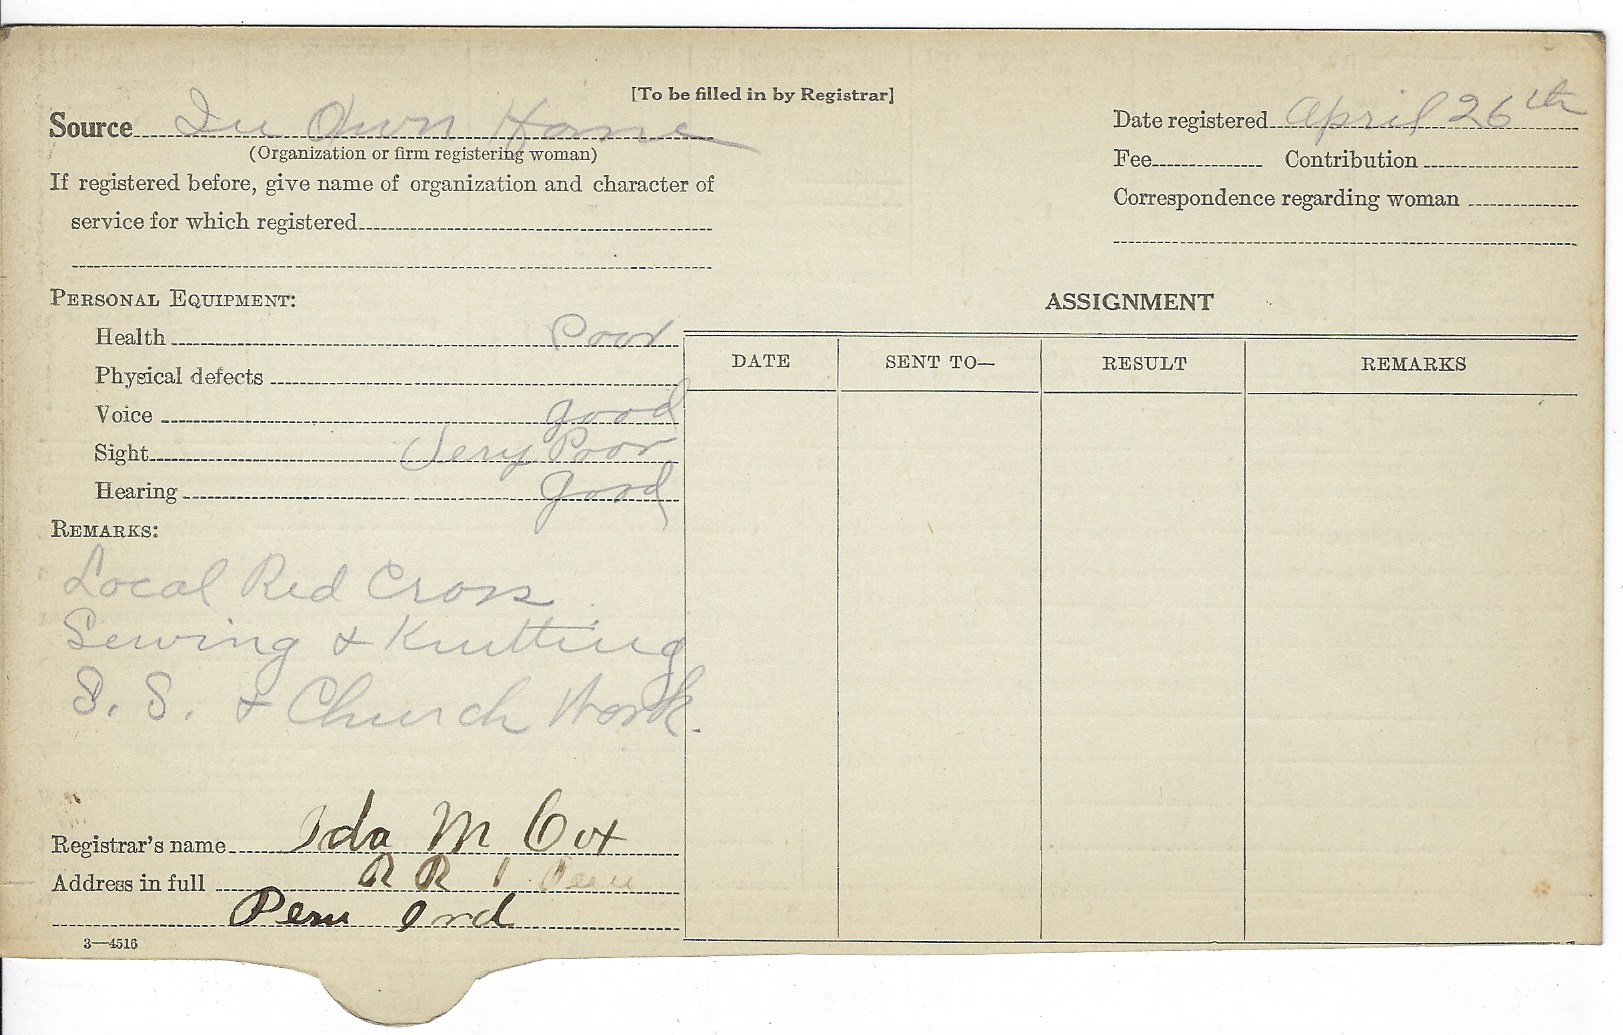 [To be filled in by Registrar]
Source In Own Home
(Organization or firm registering woman)
If registered before, give name of organization and character of
service for which registered
Date registered April 26th
Fee Contribution
Correspondence regarding woman
PERSONAL EQUIPMENT:
Health Poor
Physical defects
Voice good
Sight Very Poor
Hearing good
REMARKS:
Local Red Cross
Sewing & Knitting
S. S. & Church Work.
Registrar's name Ida M Cox
Address in full R R 1 Peru
Peru Ind
3—4516
ASSIGNMENT
DATE SENT TO— RESULT REMARKS